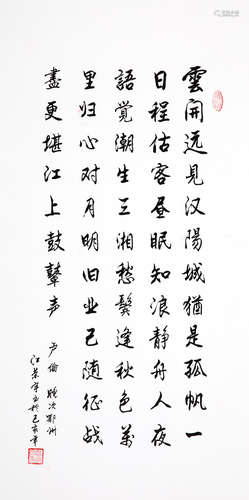 雲開远見汉陽城猶是孤帆一
日程估客昼眠知浪靜舟人夜
語覺潮生三湘愁鬓逢秋色萬
里归心对月明旧业已随征战
盡更堪江上鼓鼙声
卢倫 晚次鄂州
江荣军书於己亥年